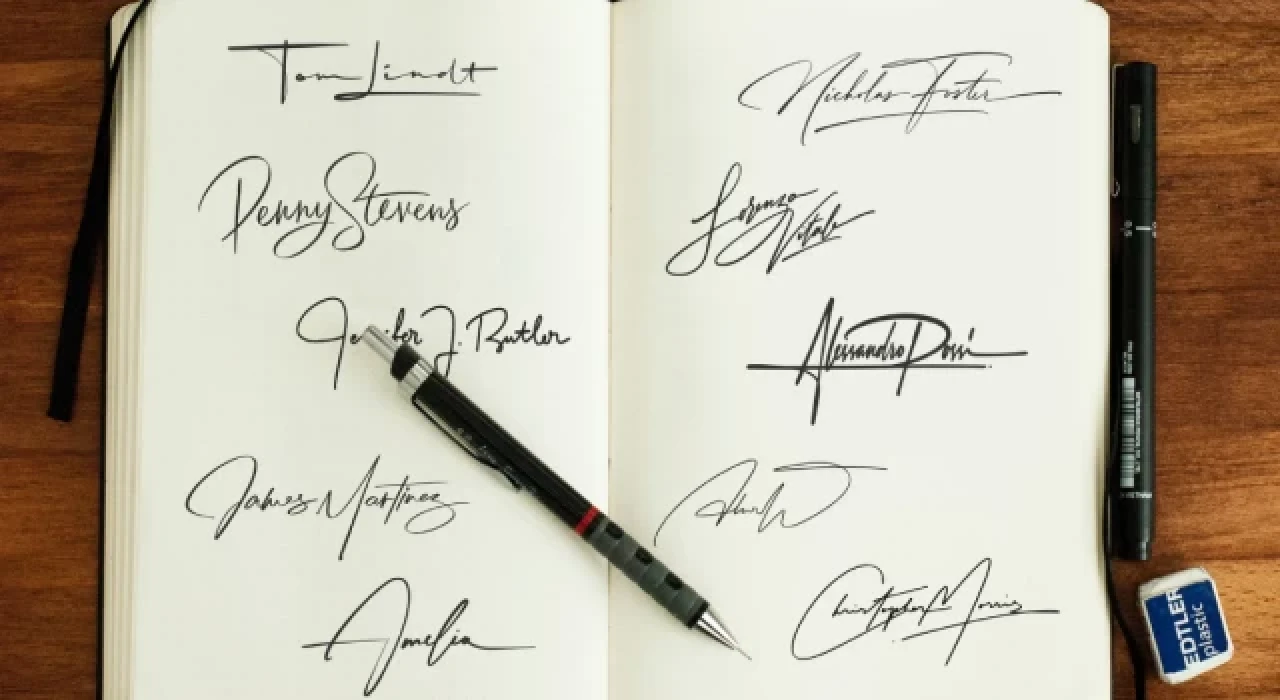 Tom Lindt
Penny Stevens
J. Butler
James Martinez
Amelia
Nicholas Foster
Lorenzo
Vitale
Alessandro Rossi
Christopher Morris
0.5
EDTLER
plastic